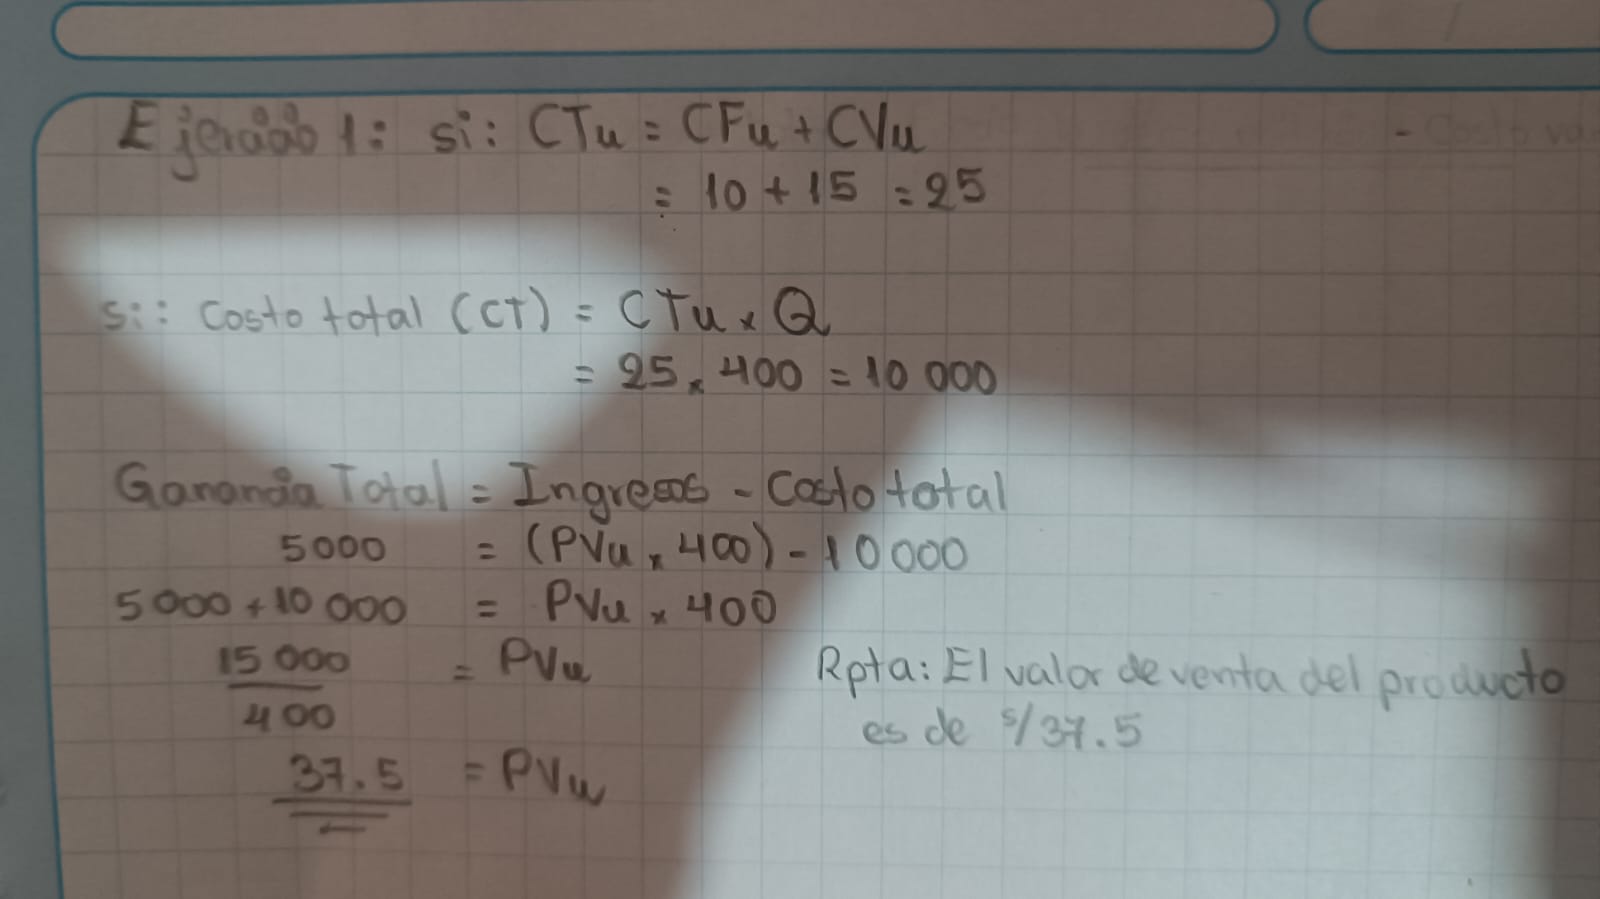 Ejercicio 1: si: CTu = CFu + CVu
= 10 + 15 = 25
- Costo va
si: Costo total (CT) = CTu x Q
= 25 x 400 = 10 000
Ganancia Total = Ingresos - Costo total
5000 = (PVu x 400) - 10 000
5 000 + 10 000 = PVu x 400
15 000 = PVu
400
37.5 = PVu
Rpta: El valor de venta del producto
es de s/37.5